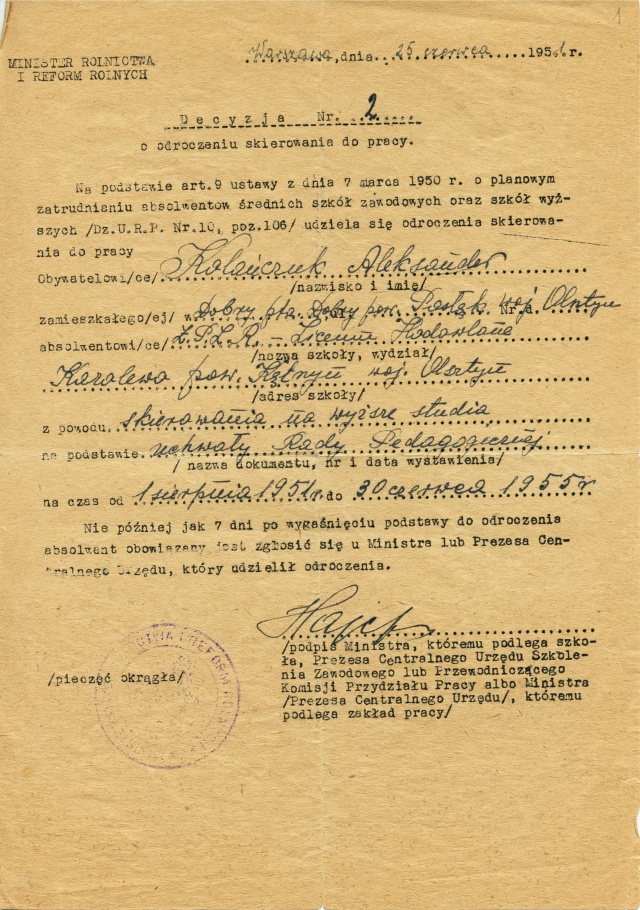 1
Warszawa, dnia 25 czerwca 1951 r.
MINISTER ROLNICTWA
I REFORM ROLNYCH
Decyzja Nr. 2
o odroczeniu skierowania do pracy.
Na podstawie art.9 ustawy z dnia 7 marca 1950 r. o planowym
zatrudnianiu absolwentów średnich szkół zawodowych oraz szkół wyż-
szych /Dz.U.R.P. Nr.10, poz.106/ udziela się odroczenia skierowa-
nia do pracy
Obywatelowi/ce/ Kolańczuk Aleksander
/nazwisko i imię/
zamieszkałego/ej/ w Dobry pta Dobry pow. Pasłęk woj. Olsztyn
absolwentowi/ce/ Z.P.L.R. - Liceum Hodowlane
/nazwa szkoły, wydział/
Karolewo pow. Kętrzyn woj. Olsztyn
/adres szkoły/
z powodu skierowania na wyższe studia
na podstawie uchwały Rady Pedagogicznej
/ nazwa dokumentu, nr i data wystawienia/
na czas od 1 sierpnia 1951r do 30 czerwca 1955r
Nie później jak 7 dni po wygaśnięciu podstawy do odroczenia
absolwent obowiązany jest zgłosić się u Ministra lub Prezesa Cen-
tralnego Urzędu, który udzielił odroczenia.
/podpis Ministra, któremu podlega szko-
ła, Prezesa Centralnego Urzędu Szkole-
nia Zawodowego lub Przewodniczącego
Komisji Przydziału Pracy albo Ministra
/Prezesa Centralnego Urzędu/, któremu
podlega zakład pracy/
/pieczęć okrągła/